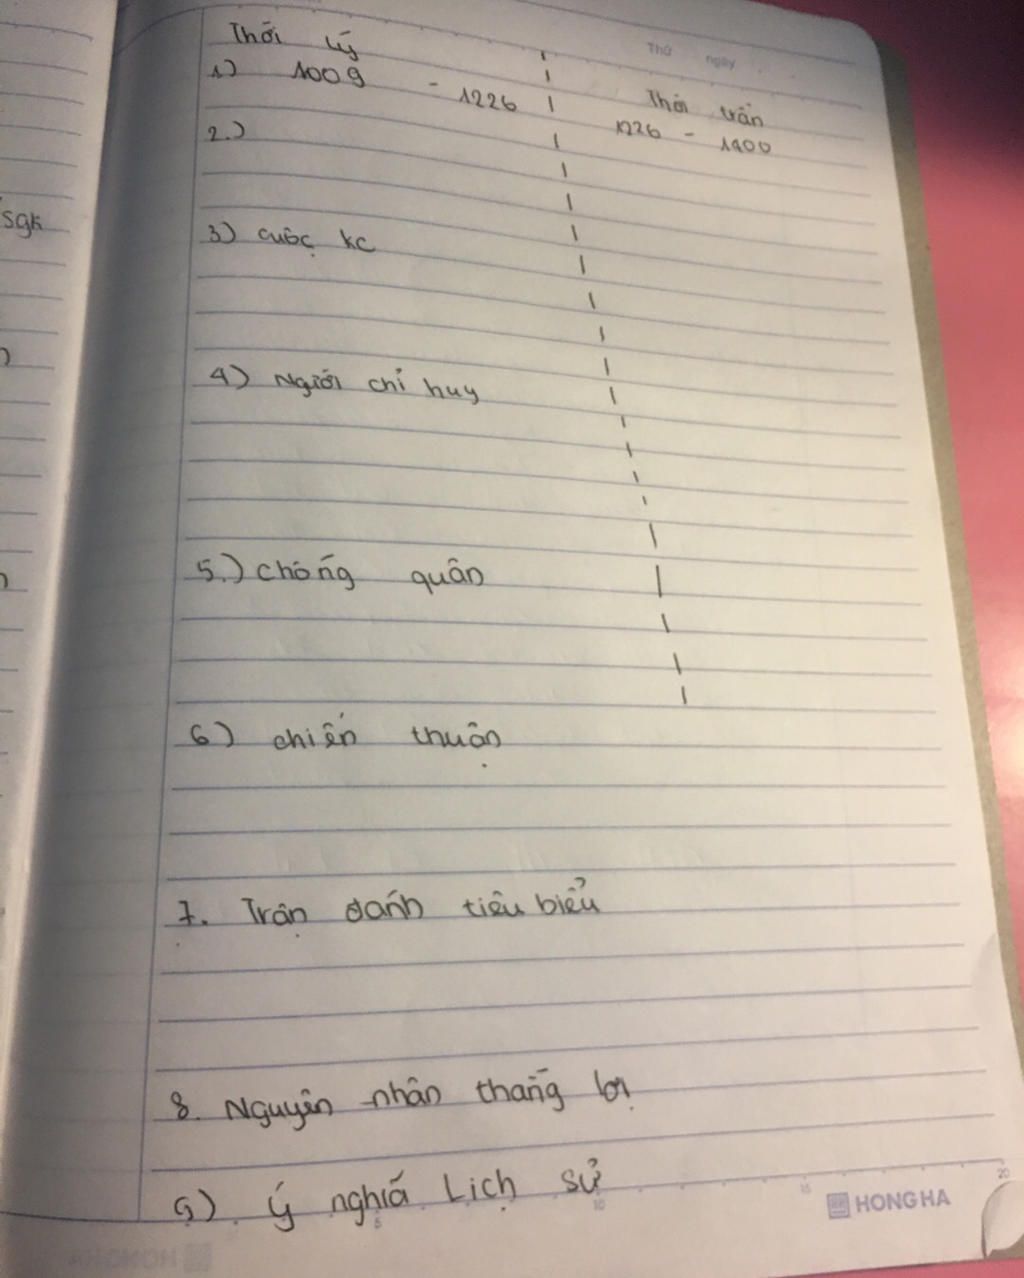 Thứ ngày
Thời Lý
Thời trần
1) 1009 - 1226
1226 - 1400
2.)
3) cuộc kc
4) Người chỉ huy
5.) chống quân
6) chiến thuận
7. Trận đánh tiêu biểu
8. Nguyên nhân thắng lợi
9) Ý nghĩa Lịch sử
5 10 15 20
HONG HA
sgk